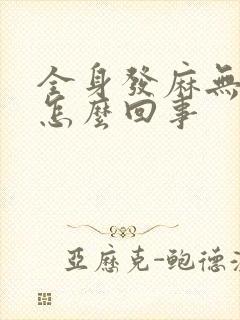 全身發麻無
怎麼回事
亞歷克-鮑德